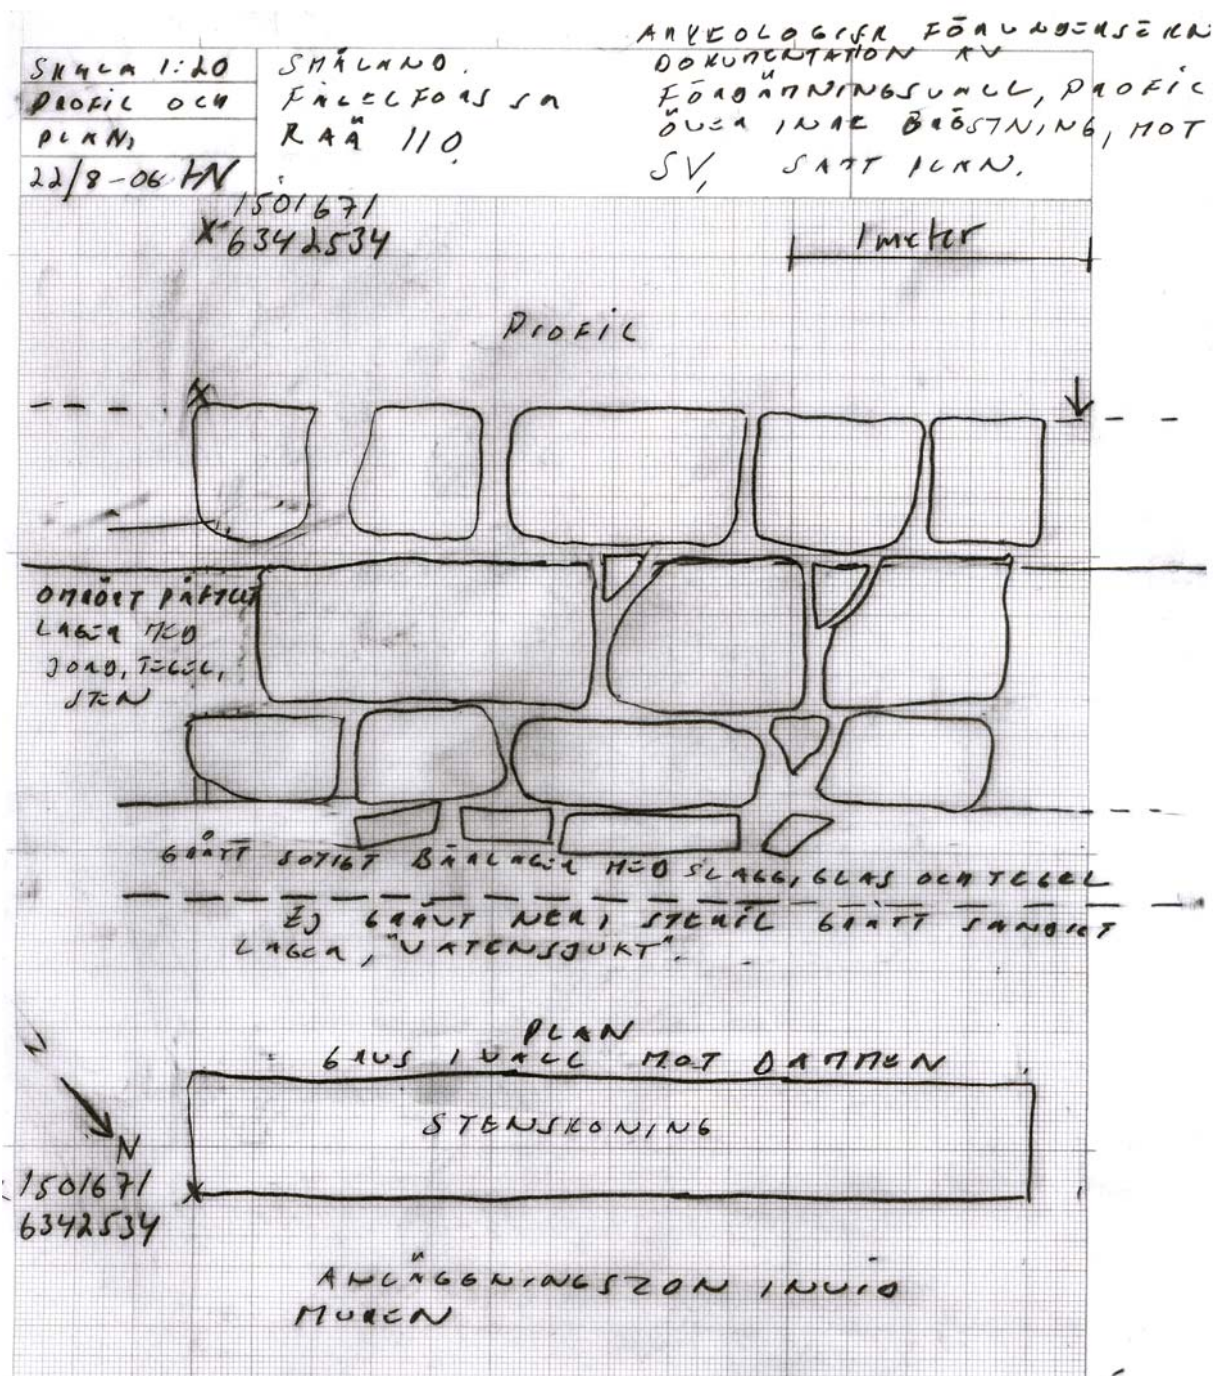 SKALA 1:20
PROFIL OCH
PLAN,
22/8-06 HN
SMÅLAND.
FÅGELFORS SN
RAÄ 110,
ARKEOLOGISK FÖRUNDERSÖKN
DOKUMENTATION AV
FÖRDÄMNINGSVALL, PROFIL
ÖVER INRE BRÖSTNING, MOT
SV, SAMT PLAN.
1501671
X 6342534
1 meter
PROFIL
X
OMRÖRT PÅFÖRT
LAGER MED
JORD, TEGEL,
STEN
GRÅTT SOTIGT BÄRLAGER MED SLAGG, GLAS OCH TEGEL
EJ GRÄVT NER, STERIL GRÅTT SANDIGT
LAGER, "VATENSJUKT".
PLAN
GRUS I VALL MOT DAMMEN
STENSKONING
N
1501671
6342534
X
ANLÄGGNINGSZON INVID
MUREN